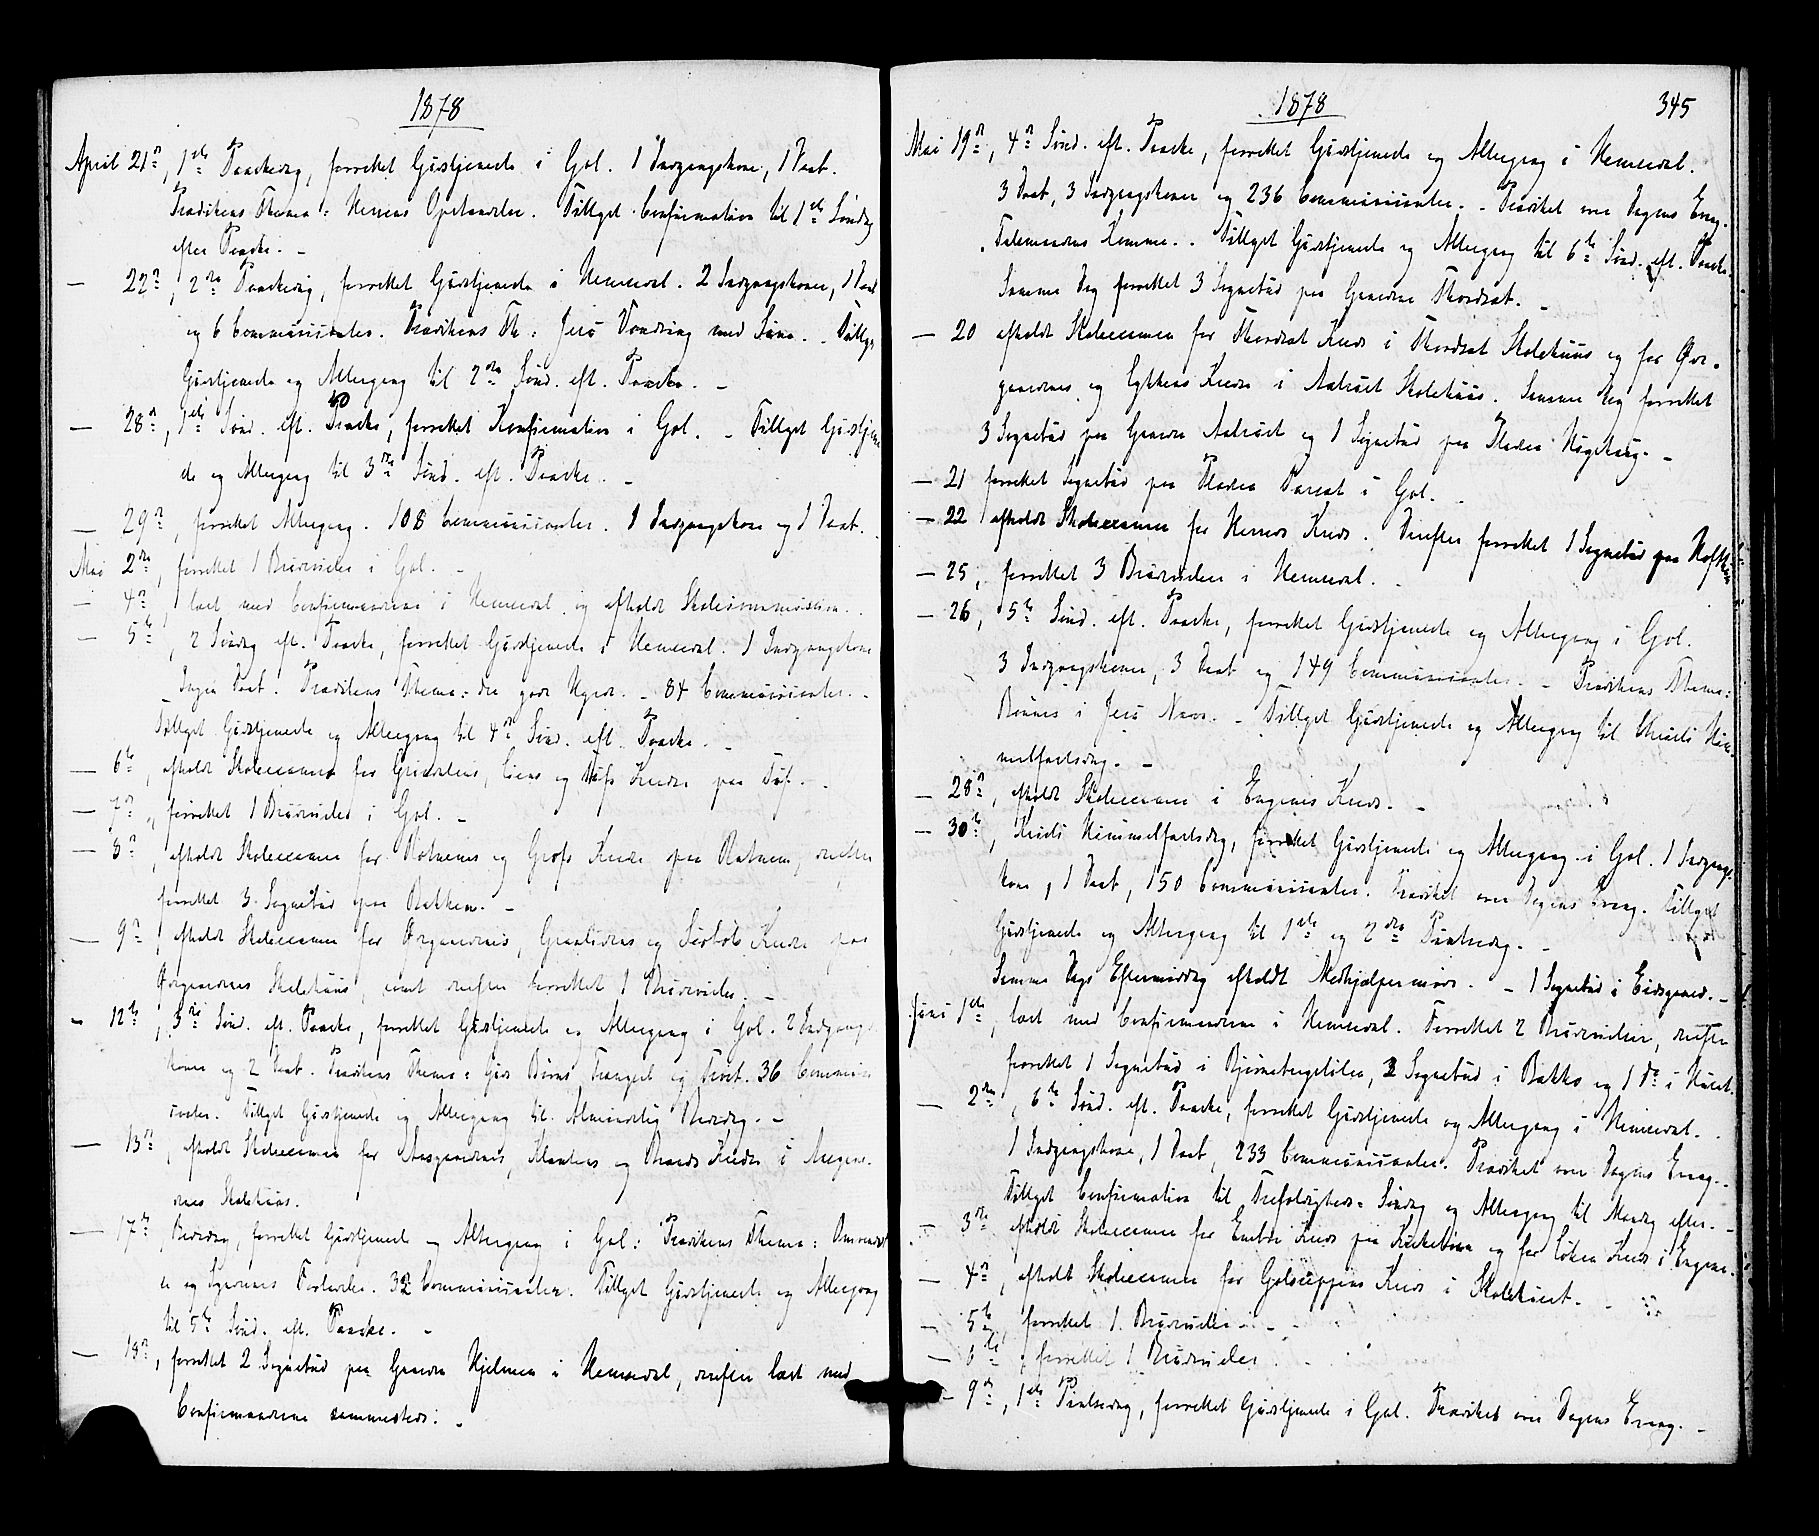 1878
April 21de, 1ste Paaskedag, forrettet Gudstjeneste i Gol. 1 Indgangskone, 1 Daab.
Prædikens Thema: Herrens Opstandelse. Tillyst Confirmation til 1ste Søndag
efter Paaske. –
– 22de, 2den Paaskedag, forrettet Gudstjeneste i Hemsedal. 2 Indgangskoner, 1 Daab
og 6 Communicanter. Prædikens Th: Jesu Vandring med Sine. – Tillyst
Gudstjeneste og Altergang til 2den Sønd. eft. Paaske. –
– 28de, 1ste Sønd. eft. Paaske, forrettet Konfirmation i Gol. – Tillyst Gudstjene
ste og Altergang til 3die Sønd. eft. Paaske. –
– 29de, forrettet Altergang. 108 Communicanter. 1 Indgangskone og 1 Daab.
Mai 2den, forrettet 1 Brudevielse i Gol. –
– 4de, læst med Confirmanderne i Hemsedal og afholdt Skolecommission.
– 5te, 2 Søndag eft. Paaske, forrettet Gudstjeneste i Hemsedal. 1 Indgangskone
Ingen Daab. Prædikens Thema: den gode Hyrde. – 84 Communicanter. –
Tillyst Gudstjeneste og Altergang til 4de Sønd. eft. Paaske. –
– 6te, afholdt Skoleexamen for Kredse paa Tuf. –
– 7de, forrettet 1 Brudevielse i Gol. –
– 8de, afholdt Skoleexamen for og Kredse paa, derefter
forrettet 3 Sognebud paa Bakken. –
– 9de, afholdt Skoleexamen for og Kredse paa
Skolehuus, samt derefter forrettet 1 Brudevielse. –
– 12te, 3die Sønd. eft. Paaske, forrettet Gudstjeneste og Altergang i Gol. 2 Indgangs
koner og 2 Daab. Prædikens Thema: Guds Børns Trængsel og Trøst. 36 Communi
canter. Tillyst Gudstjeneste og Altergang til Almindelig Bededag. –
– 13de, afholdt Skoleexamen for og Kredse i
Skolehuus.
– 17de, Bededag, forrettet Gudstjeneste og Altergang i Gol: Prædikens Thema:
og Syndernes Forladelse. 32 Communicanter. Tillyst Gudstjeneste og Altergang
til 5te Sønd. eft. Paaske. –
– 18de, forrettet 2 Sognebud paa Gaarden Hjelmen i Hemsedal, derefter læst med
Confirmanderne sammesteds. –
1878 345
Mai 19de, 4de Sønd. eft. Paaske, forrettet Gudstjeneste og Altergang i Hemsedal.
3 Daab, 3 Indgangskoner og 236 Communicanter. – Prædiket over Dagens Evang.
Talsmandens Komme. Tillyst Gudstjeneste og Altergang til 6te Sønd. eft. Paaske.
Samme Dag forrettet 3 Sognebud paa Gaardene Thordsat. –
– 20 afholdt Skoleexamen for Thordsat Kreds i Thordsat Skolehuus og for
og Lykkens Kredse i Skolehuus. Samme Dag forrettet
3 Sognebud paa Gaarden og 1 Sognebud paa Pladsen –
– 21 forrettet Sognebud paa Pladsen i Gol. –
– 22 afholdt Skoleexamen for Kreds. Derefter forrettet 1 Sognebud paa
– 25, forrettet 3 Brudevielser i Hemsedal. –
– 26, 5te Sønd. eft. Paaske, forrettet Gudstjeneste og Altergang i Gol.
3 Indgangskoner, 3 Daab og 149 Communicanter. – Prædikens Thema:
Bønnen i Jesu Navn. – Tillyst Gudstjeneste og Altergang til Christi Him
melfartsdag. –
– 28de, afholdt Skoleexamen i Kreds. –
– 30te, Christi Himmelfartsdag, forrettet Gudstjeneste og Altergang i Gol. 1 Indgangs
kone, 1 Daab, 150 Communicanter. Prædiket over Dagens Evang. Tillyst
Gudstjeneste og Altergang til 1ste og 2den Pintsedag. –
Samme Dags Eftermiddag afholdt Medhjælpermøde. – 1 Sognebud i Eidsgaard. –
Juni 1ste, læst med Confirmanderne i Hemsedal. Forrettet 2 Brudevielser, derefter
forrettet 1 Sognebud i, 2 Sognebud i Bakke og 1 do i
– 2den, 6te Sønd. eft. Paaske, forrettet Gudstjeneste og Altergang i Hemsedal.
1 Indgangskone, 1 Daab, 233 Communicanter. Prædiket over Dagens Evang. –
Tillyst Confirmation til Trefoldigheds-Søndag og Altergang til Mandag efter. –
– 3die afholdt Skoleexamen for Kreds paa og for Kreds i
– 4de, afholdt Skoleexamen for Kreds i Skolehuset. –
– 5te, forrettet 1 Brudevielse. –
– 6te, forrettet 1 Brudevielse.
– 9de, 1ste Pintsedag, forrettet Gudstjeneste i Gol. Prædiket over Dagens Evang. –